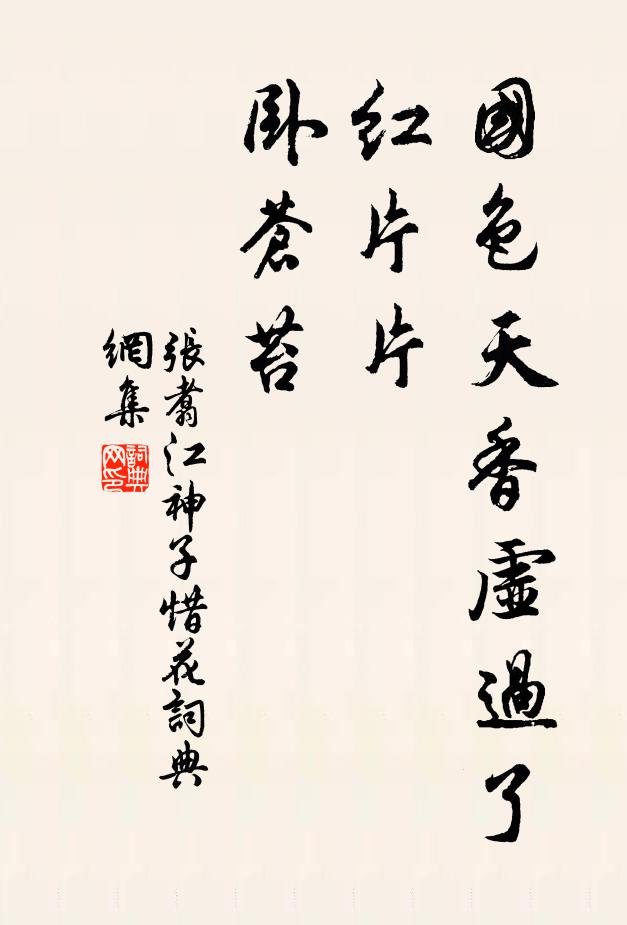 國色天香虛過了
紅片片
臥蒼苔
張翥江神子惜花詞典
網集
詞典
网印